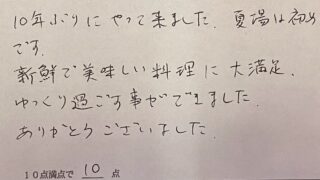 10年ぶりにやって来ました。夏場は初め
です。
新鮮で美味しい料理に大満足。
ゆっくり過ごす事ができました。
ありがとうございました。
10点満点で 10 点